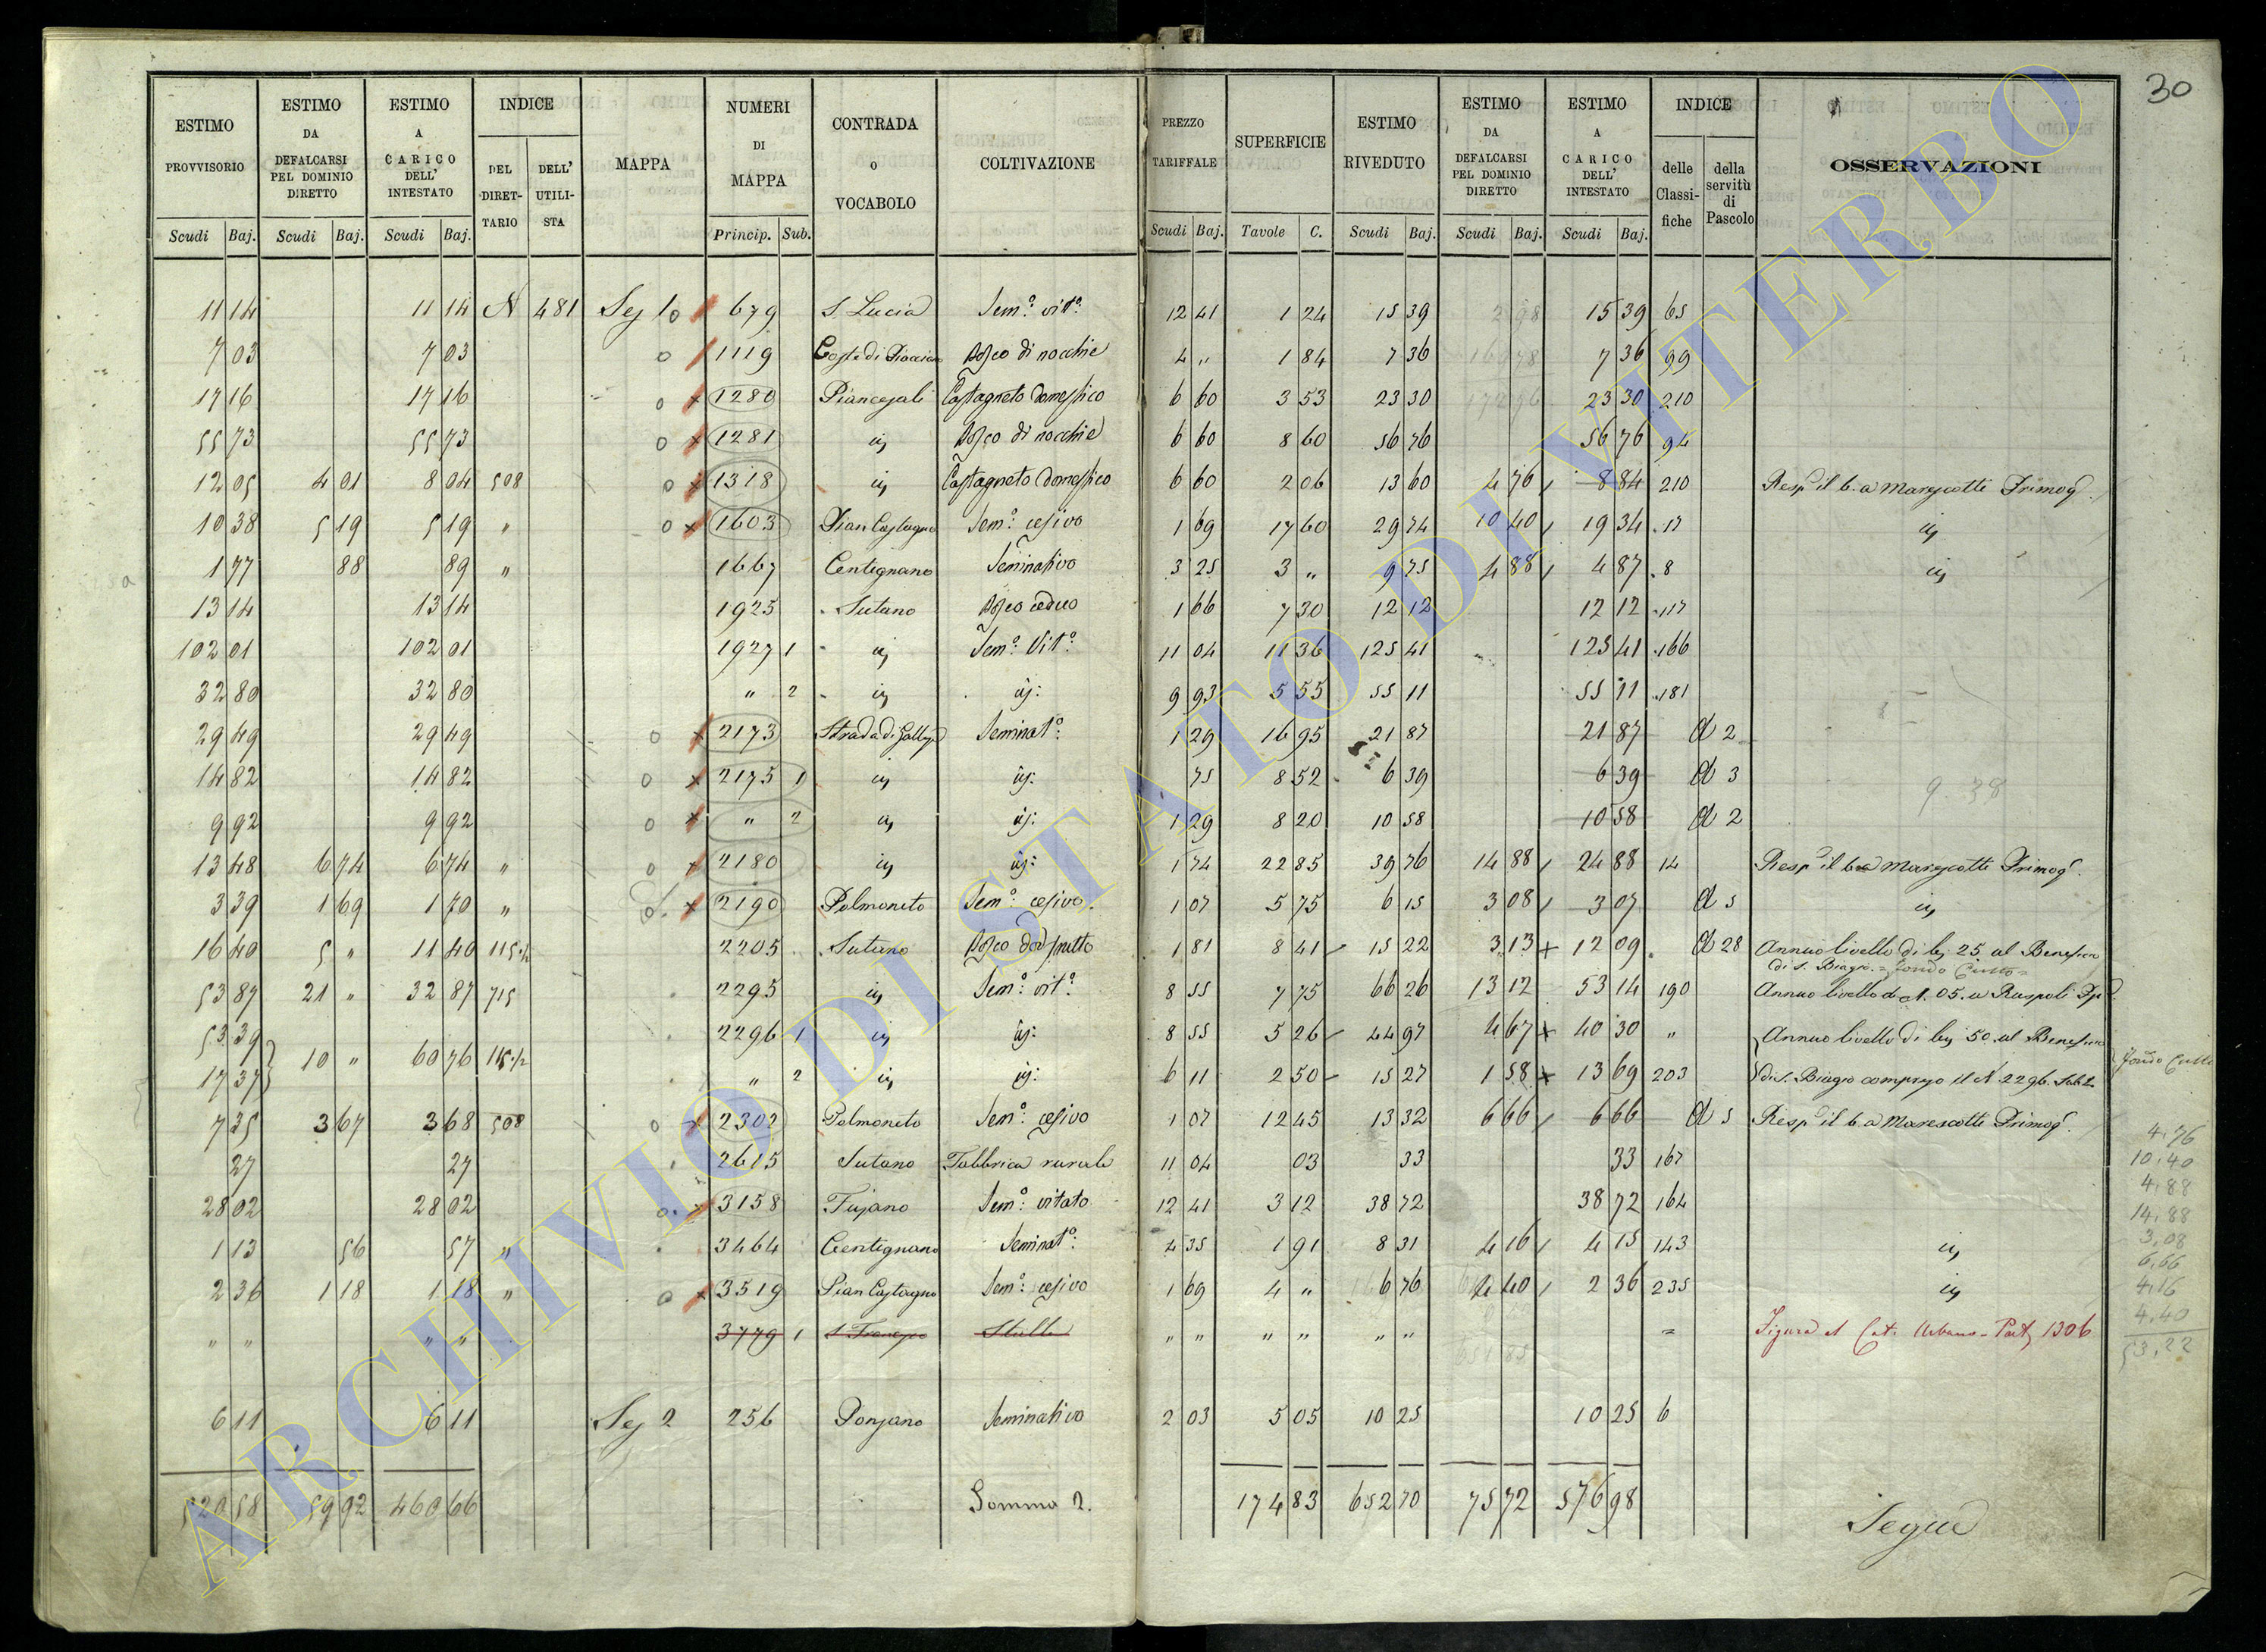 30
ESTIMO PROVVISORIO | ESTIMO DA DEFALCARSI PEL DOMINIO DIRETTO | ESTIMO A CARICO DELL' INTESTATO | INDICE DEL DIRETTARIO | DELL' UTILISTA | MAPPA | NUMERI DI MAPPA | CONTRADA o VOCABOLO | COLTIVAZIONE | PREZZO TARIFFALE | SUPERFICIE | ESTIMO RIVEDUTO | ESTIMO DA DEFALCARSI PEL DOMINIO DIRETTO | ESTIMO A CARICO DELL' INTESTATO | INDICE delle Classifiche | della servitù di Pascolo | OSSERVAZIONI
Scudi Baj. | Scudi Baj. | Scudi Baj. | Princip. Sub. | Scudi Baj. | Tavole C. | Scudi Baj. | Scudi Baj. | Scudi Baj.
11 14 | 11 14 | N 481 | Sez 1 o | 679 | S. Lucia | Sem.o vit.o | 12 41 | 1 24 | 15 39 | 15 39 | 65
7 03 | 7 03 | o | 1119 | Coste di | Bosco di nocchie | 4 " | 1 84 | 7 36 | 7 36 | 99
17 16 | 17 16 | o x | 1280 | Piancasali | Castagneto domestico | 6 60 | 3 53 | 23 30 | 23 30 | 210
55 73 | 55 73 | o x | 1281 | id | Bosco di nocchie | 6 60 | 8 60 | 56 76 | 56 76 | 94
12 05 | 4 01 | 8 04 | 508 | o x | 1318 | id | Castagneto domestico | 6 60 | 2 06 | 13 60 | 4 76 / | 8 84 | 210 | Resp il b. a Marescotti Primog.
10 38 | 5 19 | 5 19 | " | o x | 1603 | Pian Castagno | Sem.o cesivo | 1 69 | 17 60 | 29 74 | 10 40 / | 19 34 | 17 | id
1 77 | 88 | 89 | " | 1667 | Centignano | Seminativo | 3 25 | 3 " | 9 75 | 4 88 / | 4 87 | 8 | id
13 14 | 13 14 | 1925 | Sutano | Bosco ceduo | 1 66 | 7 30 | 12 12 | 12 12 | 117
102 01 | 102 01 | 1927 1 | id | Sem.o Vit.o | 11 04 | 11 36 | 125 41 | 125 41 | 166
32 80 | 32 80 | " 2 | id | id: | 9 93 | 5 55 | 55 11 | 55 11 | 181
29 49 | 29 49 | o x | 2173 | Strada di | Seminat.o | 1 29 | 16 95 | 21 87 | 21 87 | A 2
14 82 | 14 82 | o x | 2175 1 | id | id: | 75 | 8 52 | 6 39 | 6 39 | A 3 | 9. 38
9 92 | 9 92 | o x | " 2 | id | id: | 1 29 | 8 20 | 10 58 | 10 58 | A 2
13 48 | 6 74 | 6 74 | " | o x | 2180 | id | id: | 1 74 | 22 85 | 39 76 | 14 88 / | 24 88 | 14 | Resp il b a Marescotti Primog.
3 39 | 1 69 | 1 70 | " | o. x | 2190 | Polmoneto | Sem.o cesivo. | 1 07 | 5 75 | 6 15 | 3 08 / | 3 07 | A 5 | id
16 40 | 5 " | 11 40 | 2205 | Sutano | Bosco | 1 81 | 8 41 | 15 22 | 3 13 x | 12 09 | A 28 | Annuo livello di bj 25. al Beneficio
di S. Biagio = fondo Culto =
53 87 | 21 " | 32 87 | 715 | 2295 | id | Sem.o vit.o | 8 55 | 7 75 | 66 26 | 13 12 | 53 14 | 190 | Annuo livello di 1. 05. a Ruspoli
53 39 | 10 " | 60 76 | 2296 1 | id | id: | 8 55 | 5 26 | 44 97 | 4 67 x | 40 30 | " | Annuo livello di bj 50. al Beneficio
17 37 | " 2 | id | id: | 6 11 | 2 50 | 15 27 | 1 58 x | 13 69 | 203 | di S. Biagio compreso il N 2296. Sub 2. | fondo Culto
7 35 | 3 67 | 3 68 | 508 | o x | 2302 | Polmoneto | Sem.o cesivo | 1 07 | 12 45 | 13 32 | 6 66 / | 6 66 | A 5 | Resp il b. a Marescotti Primog.
27 | 27 | 2615 | Sutano | Fabbrica rurale | 11 04 | 03 | 33 | 33 | 167
28 02 | 28 02 | o. x | 3158 | Fusano | Sem.o vitato | 12 41 | 3 12 | 38 72 | 38 72 | 164
1 13 | 56 | 57 | " | 3464 | Centignano | Seminat.o | 4 35 | 1 91 | 8 31 | 4 16 / | 4 15 | 143 | id
2 36 | 1 18 | 1 18 | " | o x | 3519 | Pian Castagno | Sem.o cesivo | 1 69 | 4 " | 6 76 | 4 40 / | 2 36 | 235 | id
" " | " " | 3779 1 | S. Francesco | Stalla | " " | " " | " " | = | Figura al Cat. Urbano - Part. 1306
4,76
10,40
4,88
14,88
3,08
6,66
4,16
4,40
53,22
6 11 | 6 11 | Sez 2 | 256 | Ponzano | Seminativo | 2 03 | 5 05 | 10 25 | 10 25 | 6
520 58 | 59 92 | 460 66 | Somma 2. | 174 83 | 652 70 | 75 72 | 576 98 | Segue
ARCHIVIO DI STATO DI VITERBO